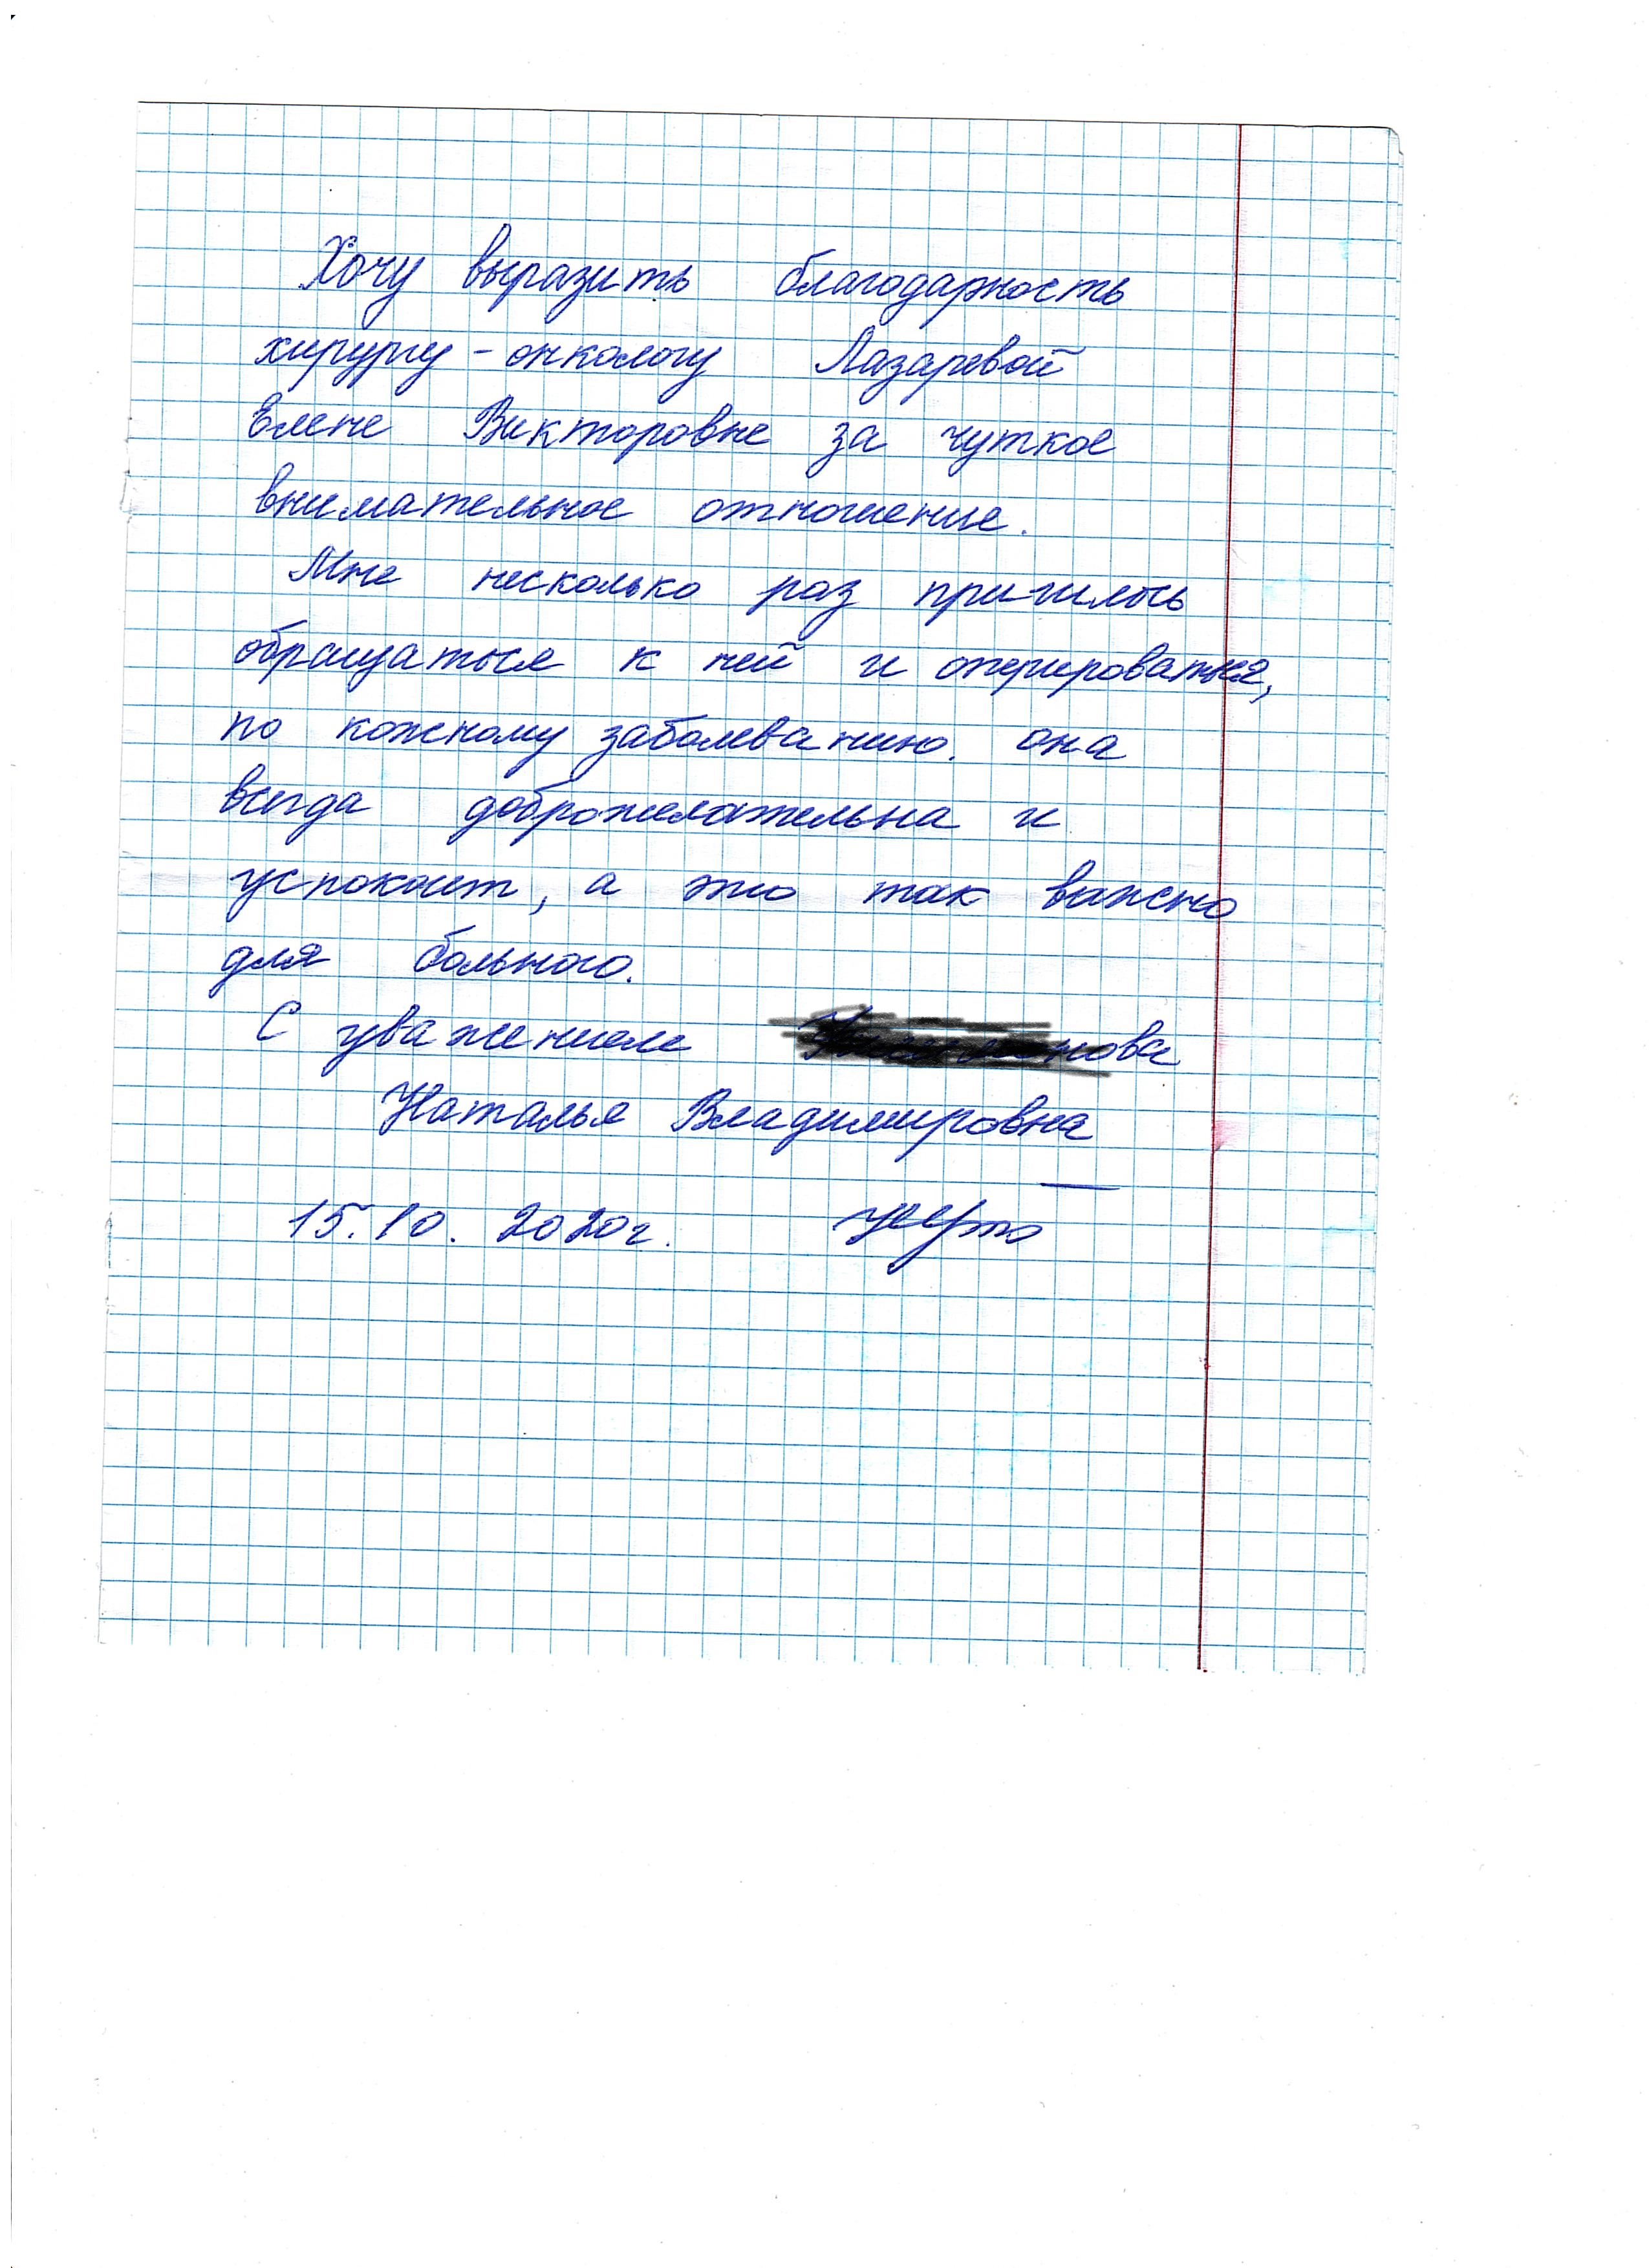 Хочу выразить благодарность
хирургу-онкологу Лазаревой
Елене Викторовне за чуткое
внимательное отношение.
Мне несколько раз пришлось
обращаться к ней и оперироваться,
по кожному заболеванию. она
всегда доброжелательна и
успокоит, а это так важно
для больного.
С уважением
Наталья Владимировна
15.10.2020г.